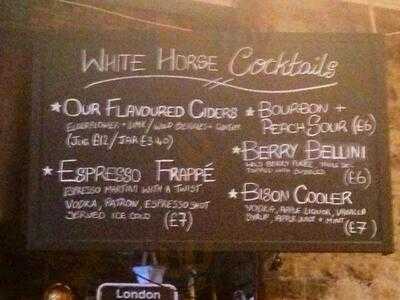 White Horse Cocktails
★ Our Flavoured Ciders
Elderflower + Lime / Wild Berries + Ginger
(Jug £12 / Jar £3.40)
★ Espresso Frappé
Espresso Martini with a twist
Vodka, Patron, Espresso shot
served ice cold (£7)
★ Bourbon +
Peach Sour (£6)
★ Berry Bellini
Wild Berry Puree
Topped with
(£6)
★ Bison Cooler
Vodka, Apple Liquor, Vanilla
Syrup, Apple Juice + Mint (£7)
London